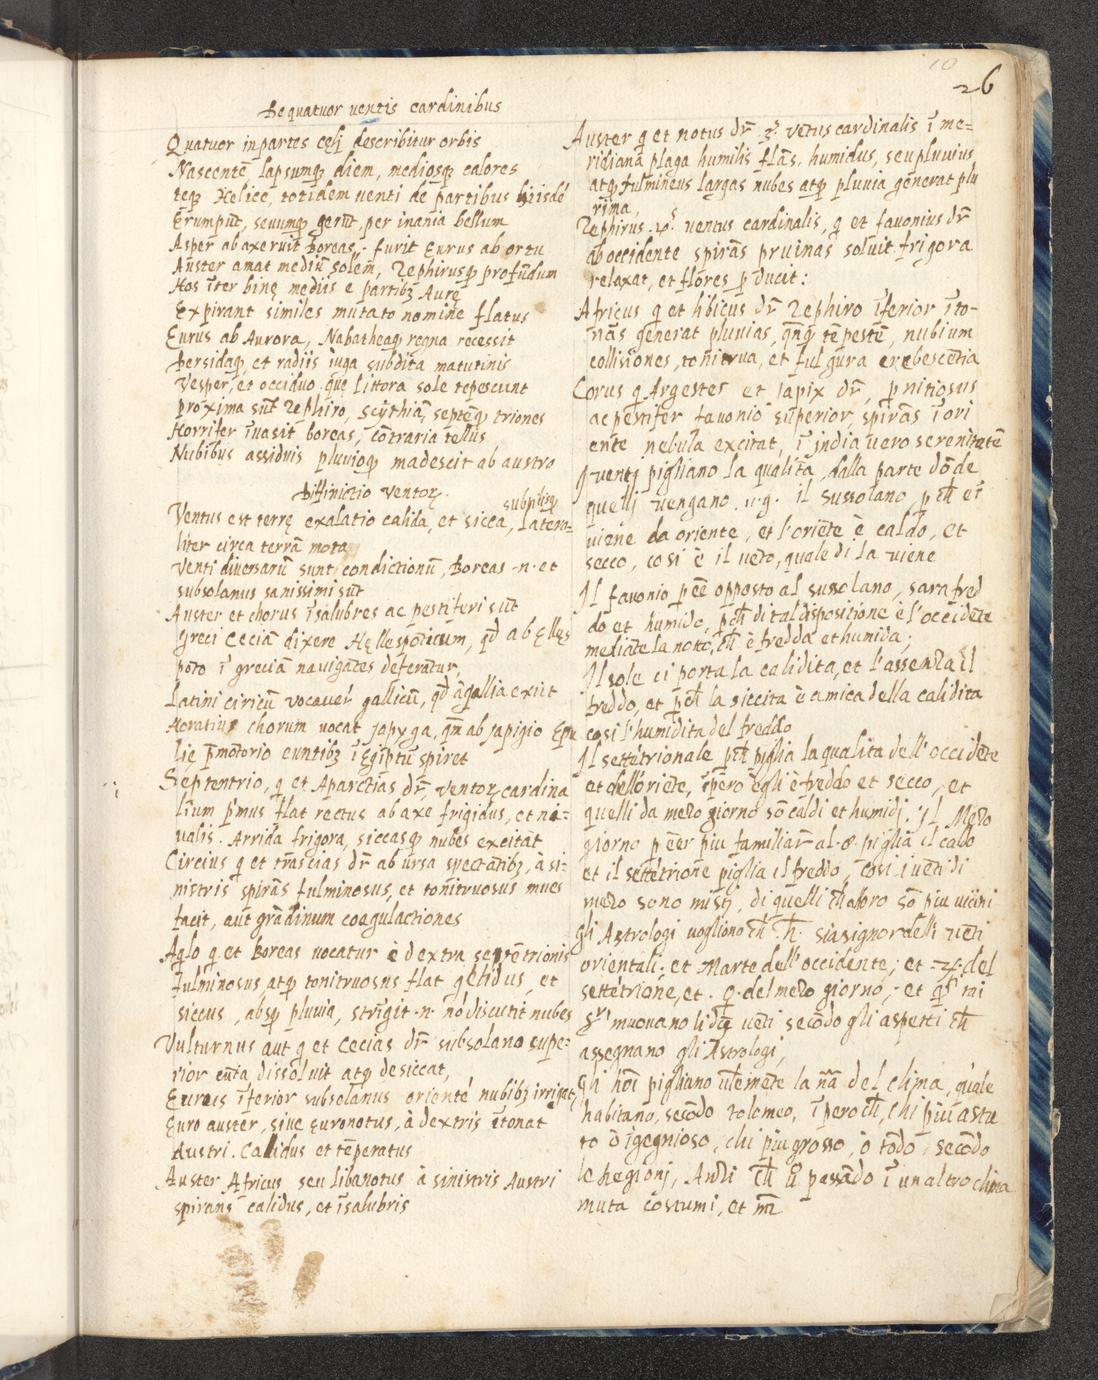 10
26
De quatuor uentis cardinibus
Quatuor in partes celj describitur orbis
Nascentē lapsumq diem, mediosq calores
teq Helice, totidem uenti de partibus hiisdē
Erumpūt, seuumq gerūt, per inania bellum
Asper ab axe ruit Boreas, furit Eurus ab ortu
Auster amat mediū solem, Zephirusq profūdum
Hos īter binę mediis e partibȝ Aurę
Expirant similes mutato nomine flatus
Eurus ab Aurora, Nabatheaq regna recessit
Persidaq, et radiis iuga subdita matutinis
Vesper, et occiduo que littora sole tepescunt
proxima sūt Zephiro, Scythiā, septēq triones
Horrifer īuasit boreas, cōtraria tellus
Nubibus assiduis pluuioq madescit ab austro
Diffinictio ventoꝝ.
Ventus est terrę exalatio calida, et sicca, latera=
liter circa terrā mota
Venti diuersarū sunt condictionū, Boreas .n. et
subsolanus sanissimi sūt
Auster et chorus īsalubres ac pestiferi sūt
Greci Ceciā dixere Hęllespōticum, qđ ab ęllęs
pōto ī greciā nauigātes deferatur,
Latini ciriciū vocauer̄ gallicū, qđ ā gallia exiit
Horatius chorum uocat japyga, qm̄ ab japigio Apu
lię p̄mōtorio euntibȝ ī Egiptū spiret
Septentrio, q et Aparctias dr̄ ventoꝝ cardina
lium p̄mus flat rectus ab axe frigidus, et ni=
ualis. Arrida frigora, siccasq nubes excitāt
Circius q et trāscias dr̄ ab ursa spectātibȝ, à si=
nistris spirās fulminosus, et tonitruosus niues
facit, aut grādinum coagulactiones
Aqlo q et Boreas vocatur è dextra septētrionis
fulminosus atq tonitruosus flat gelidus, et
siccus, absq pluuia, strīgit .n. nō discutit nubes
Vulturnus aut q et Cecias dr̄ subsolano supe=
rior cūta dissoluit atq desiccat,
Eurus īferior subsolanus orientē nubibȝ irrigat,
Euro auster, siue Euronotus, à dextris ītonat
Austri. Calidus et tēperatus
Auster Africus seu libanotus à sinistris Austri
spirans calidus, et īsalubris
Auster q et notus dr̄ 3ꝰ vētus cardinalis ī me=
ridiana plaga humilis flās, humidus, seu pluuius
atq fulmineus largas nubes atq pluuia generat plu
rima,
Zephirus .4ꝰ. uentus cardinalis, q et fauonius dr̄
ab occidente spirās pruinas soluit frigora
relaxat, et flores p̄ducit:
Africus q et libicus dr̄ Zephiro īferior īto=
nās generat pluuias, qn̄q tēpestē, nubium
collisiones, tonitrua, et fulgura crebescētia
Corus q Argestes et iapix dr̄, p̄nitiosus
ac pestifer fauonio superior, spirās ī ori
ente nebula excitat, ī jndia uero serenitatē
J uentj pigliano la qualità, dalla parte dōde
quellj uengano .u.g. il sussolano, pch̄ ei
uiene da oriente, et l'oriēte è caldo, et
secco, cosi è il uēto, quale di la uiene
Jl fauonio p ēē opposto al sussolano, sara fred
do et humido, pch̄ di tal dispositione è l'occidēte
mediāte la notte, ch̄ è fredda et humida;
Jl sole ci porta la calidita, et l'assenza il
freddo, et pch̄ la siccita è amica della calidita
cosi l'humidita del freddo
Jl settētrionale pch̄ piglia la qualita dell' occidēte
et dell'oriēte, īpero egli è freddo et secco, et
quelli da mezo giorno sō caldi et humidj. Jl Mezo
giorno p ēēr piu familiar al .☉. piglia il caldo
et il settētrione piglia il freddo, cosi i uēti di
mezo sono mistj, di quelli ch̄ alloro sō piu uicini
gli Astrologi uogliono ch̄ .♄. sia signor delli uēti
orientali; et Marte dell'occidente; et .♃. del
settētrione, et .♀. del mezo giorno, et
muouano li dcj uēti secōdo gli aspetti ch̄
assegnano gli Astrologi,
Gli hoī pigliano la nā del clima, quale
habitano, secōdo tolomeo, īpero ch̄, chi piu astu
to ò īgegnioso, chi piu grosso, ò tōdo, secōdo
le Regionj, Anzi ch̄ passādo ī un altro clima
muta costumi, et